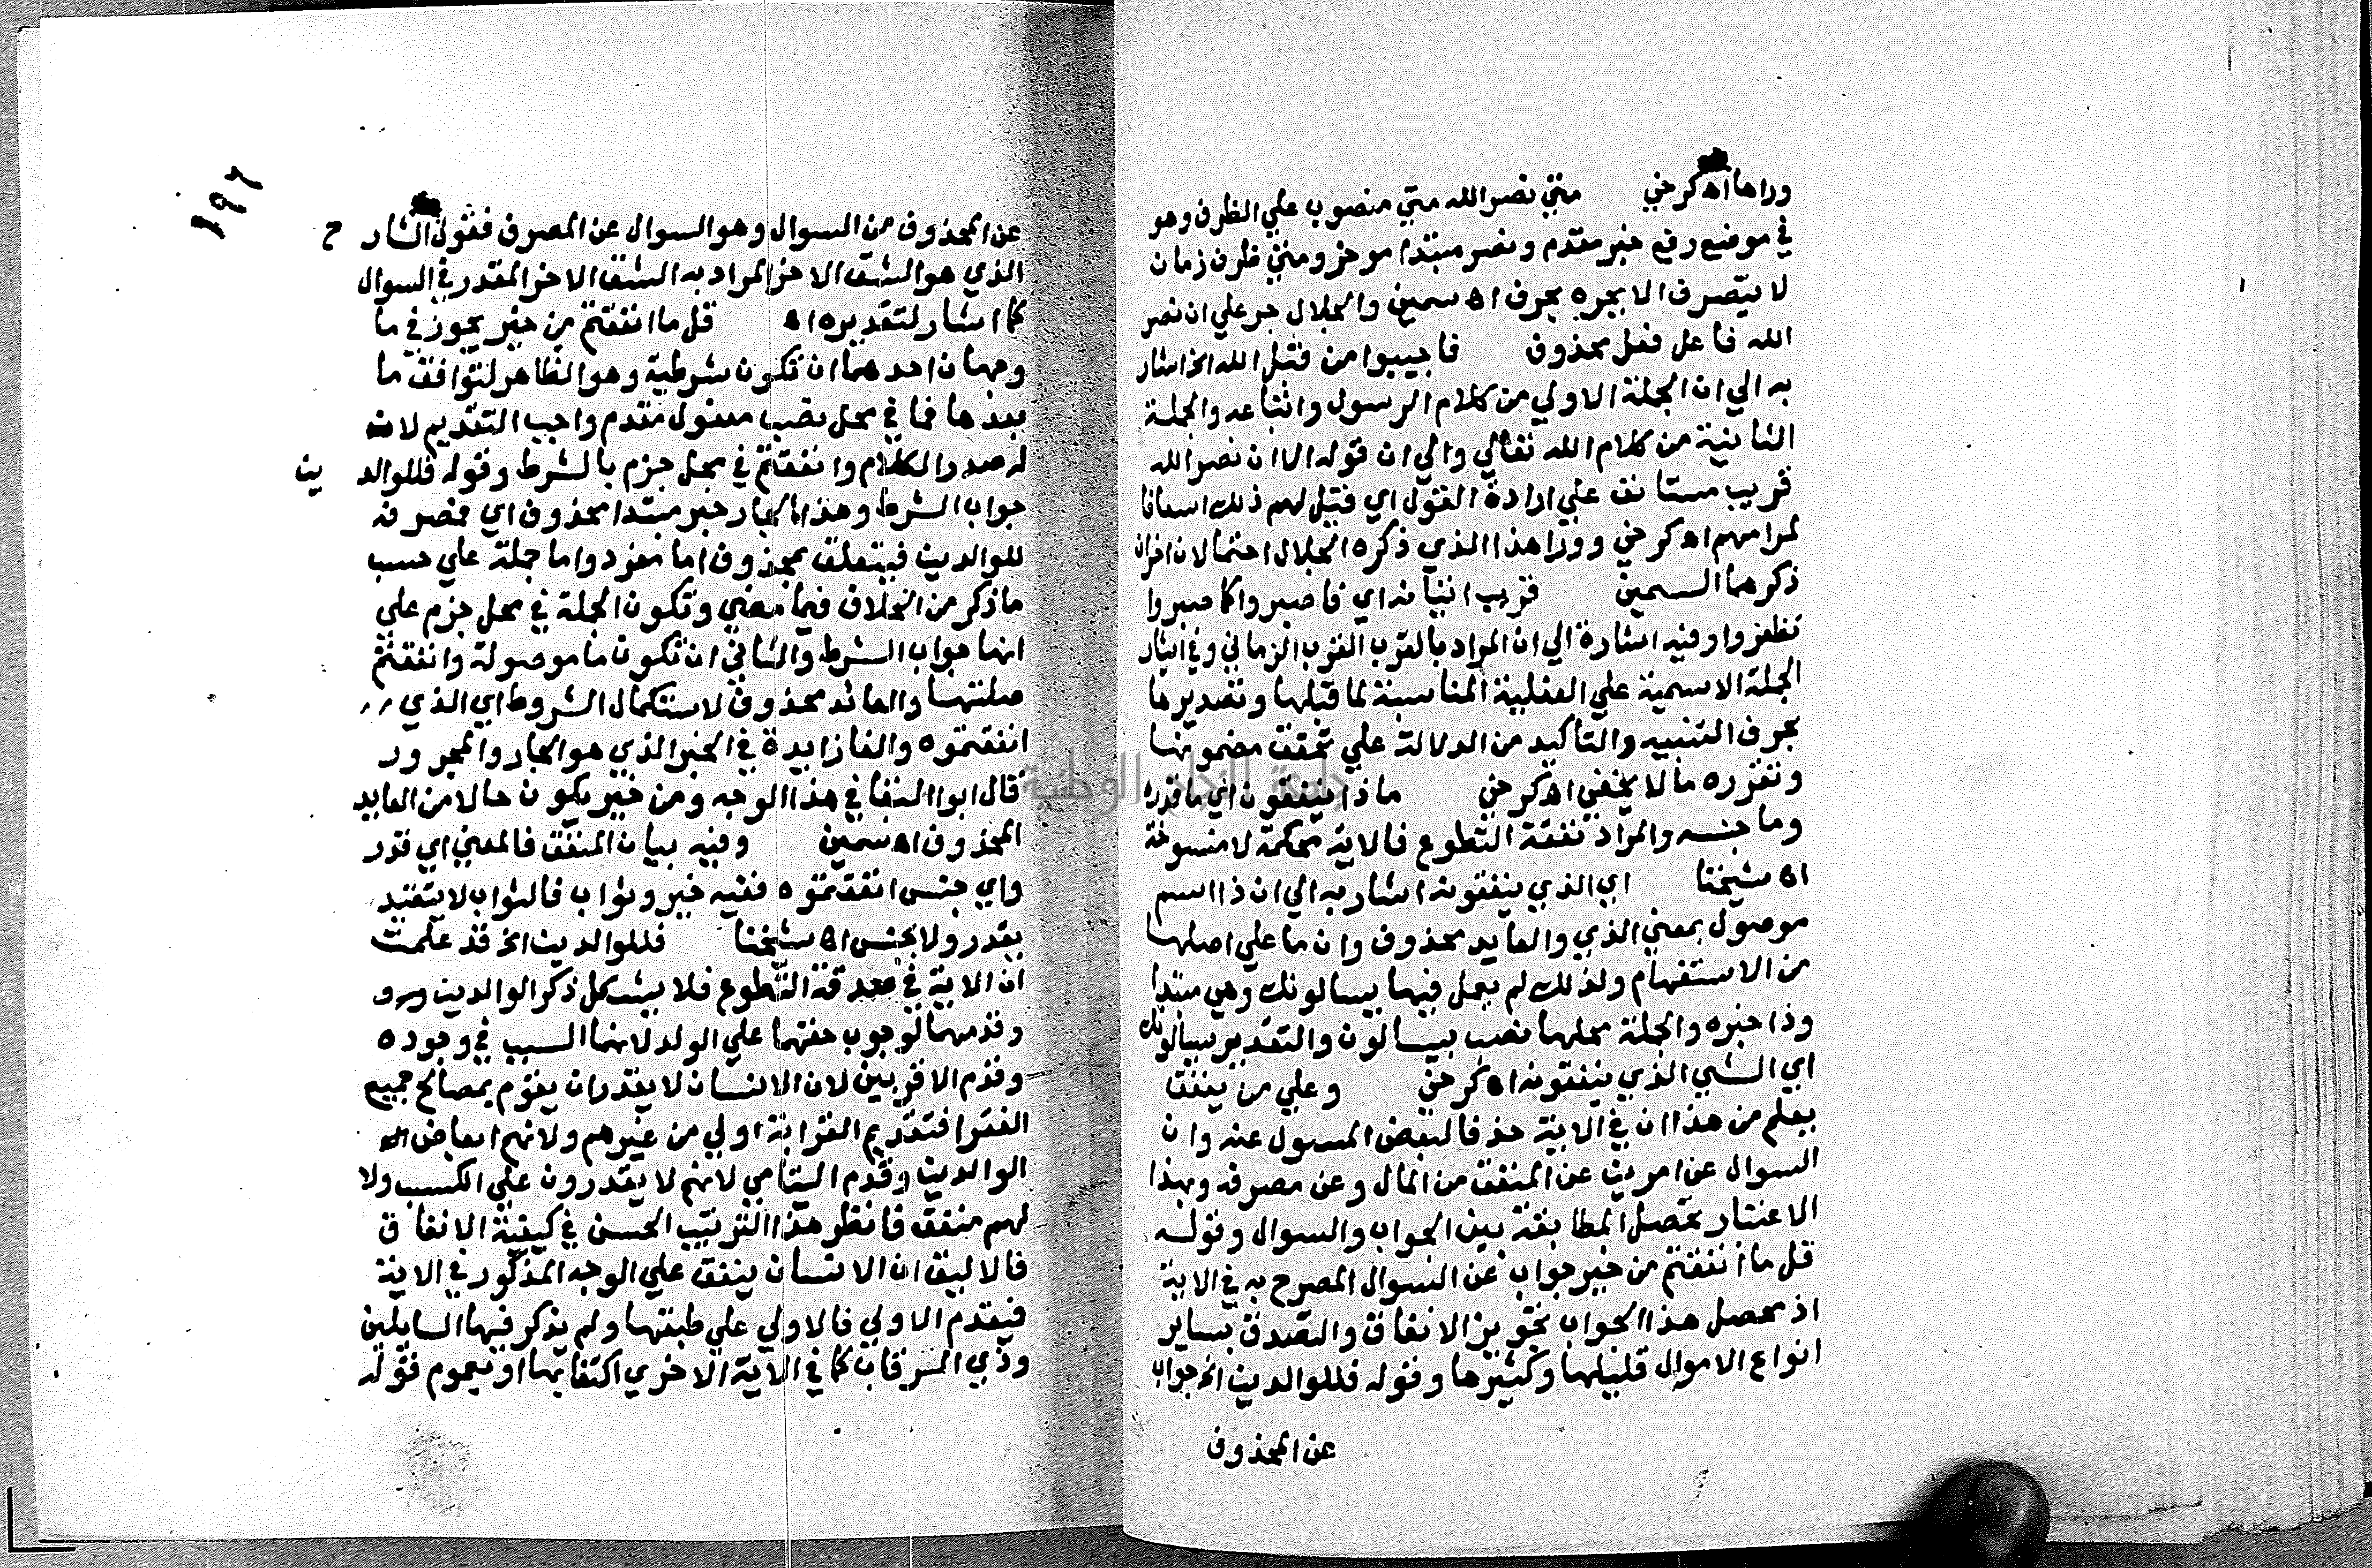 وراها اه كرخي متي نصر الله متي منصوب علي الظرف وهو
في موضع رفع خبر مقدم ونصر مبتدا موخر ومتي ظرف زمان
لا يتصرف الا بجره بحرف اه سمين والجلال جر علي ان نصر
الله فاعل فعل محذوف فاجيبوا من قبل الله الخ اشار
به الي ان الجملة الاولي من كلام الرسول واتباعه والجملة
الثانية من كلام الله تعالي والي ان قوله الا ان نصر الله
قريب مستانف علي ارادة القول اي فقيل لهم ذلك اسعافا
لمرامهم اه كرخي وورا هذا الذي ذكره الجلال احتمالان اخران
ذكرهما السمين قريب اتيانه اي فاصبروا كما صبروا
تظفروا وفيه اشارة الي ان المراد بالقرب القرب الزماني وفي ايثار
الجملة الاسمية علي الفعلية المناسبة لما قبلها وتصديرها
بحرف التنبيه والتاكيد من الدلالة علي تحقق مضمونها
وتقرره ما لا يخفي اه كرخي ماذا ينفقون اي ما قدره
وما جنسه والمراد نفقة التطوع فالاية محكمة لا منسوخة
اه شيخنا اي الذي ينفقونه اشار به الي ان ذا اسم
موصول بمعني الذي والعايد محذوف وان ما علي اصلها
من الاستفهام ولذلك لم يعمل فيها يسالونك وهي مبتدا
وذا خبره والجملة محلها نصب بيسالون والتقدير يسالونك
اي الشي الذي ينفقونه اه كرخي وعلي من ينفق
يعلم من هذا ان في الاية حذفا لبعض المسول عنه وان
السوال عن امرين عن المنفق من المال وعن مصرفه وبهذا
الاعتبار تحصل المطابقة بين الجواب والسوال وقوله
قل ما انفقتم من خير جواب عن السوال المصرح به في الاية
اذ محصل هذا الجواب تجويز الانفاق والتصدق بساير
انواع الاموال قليلها وكثيرها وقوله فللوالدين الخ جواب
عن المحذوف
١٩٦
عن المحذوف من السوال وهو السوال عن المصرف فقول الشارح
الذي هو الشق الاخر المراد به الشق الاخر المقدر في السوال
كما اشار لتقديره اه قل ما انفقتم من خير يجوز في ما
وجهان احدهما ان تكون شرطية وهو الظاهر لتوافق ما
بعدها فما في محل نصب مفعول مقدم واجب التقديم لان
له صدر الكلام وانفقتم في محل جزم بالشرط وقوله فللوالدين
جواب الشرط وهذا الجار خبر مبتدا محذوف اي فمصرفه
للوالدين فيتعلق بمحذوف اما مفرد واما جملة علي حسب
ما ذكر من الخلاف فيما مضي وتكون الجملة في محل جزم علي
انها جواب الشرط والثاني ان تكون ما موصولة وانفقتم
صلتها والعائد محذوف لاستكمال الشروط اي الذي
انفقتموه والفا زايدة في الخبر الذي هو الجار والمجرور
قال ابو البقا في هذا الوجه ومن خير يكون حالا من العايد
المحذوف اه سمين وفيه بيان المنفق فالمعني اي قدر
واي جنس انفقتموه ففيه خير وثواب فالثواب لا يتقيد
بقدر ولا بجنس اه شيخنا فللوالدين الخ قد علمت
ان الاية في صدقة التطوع فلا يشكل ذكر الوالدين
وقدمهما لوجوب حقهما علي الولد لانهما السبب في وجوده
وقدم الاقربين لان الانسان لا يقدر ان يقوم بمصالح جميع
الفقرا فتقديم القرابة اولي من غيرهم ولانهم ابعاض
الوالدين وقدم اليتامي لانهم لا يقدرون علي الكسب ولا
لهم منفق فانظر هذا الترتيب الحسن في كيفية الانفاق
فالاليق ان الانسان ينفق علي الوجه المذكور في الاية
فيقدم الاولي فالاولي علي طبقها ولم يذكر فيها السايلين
وذي الرقاب كما في الاية الاخري اكتفا بها او بعموم قوله